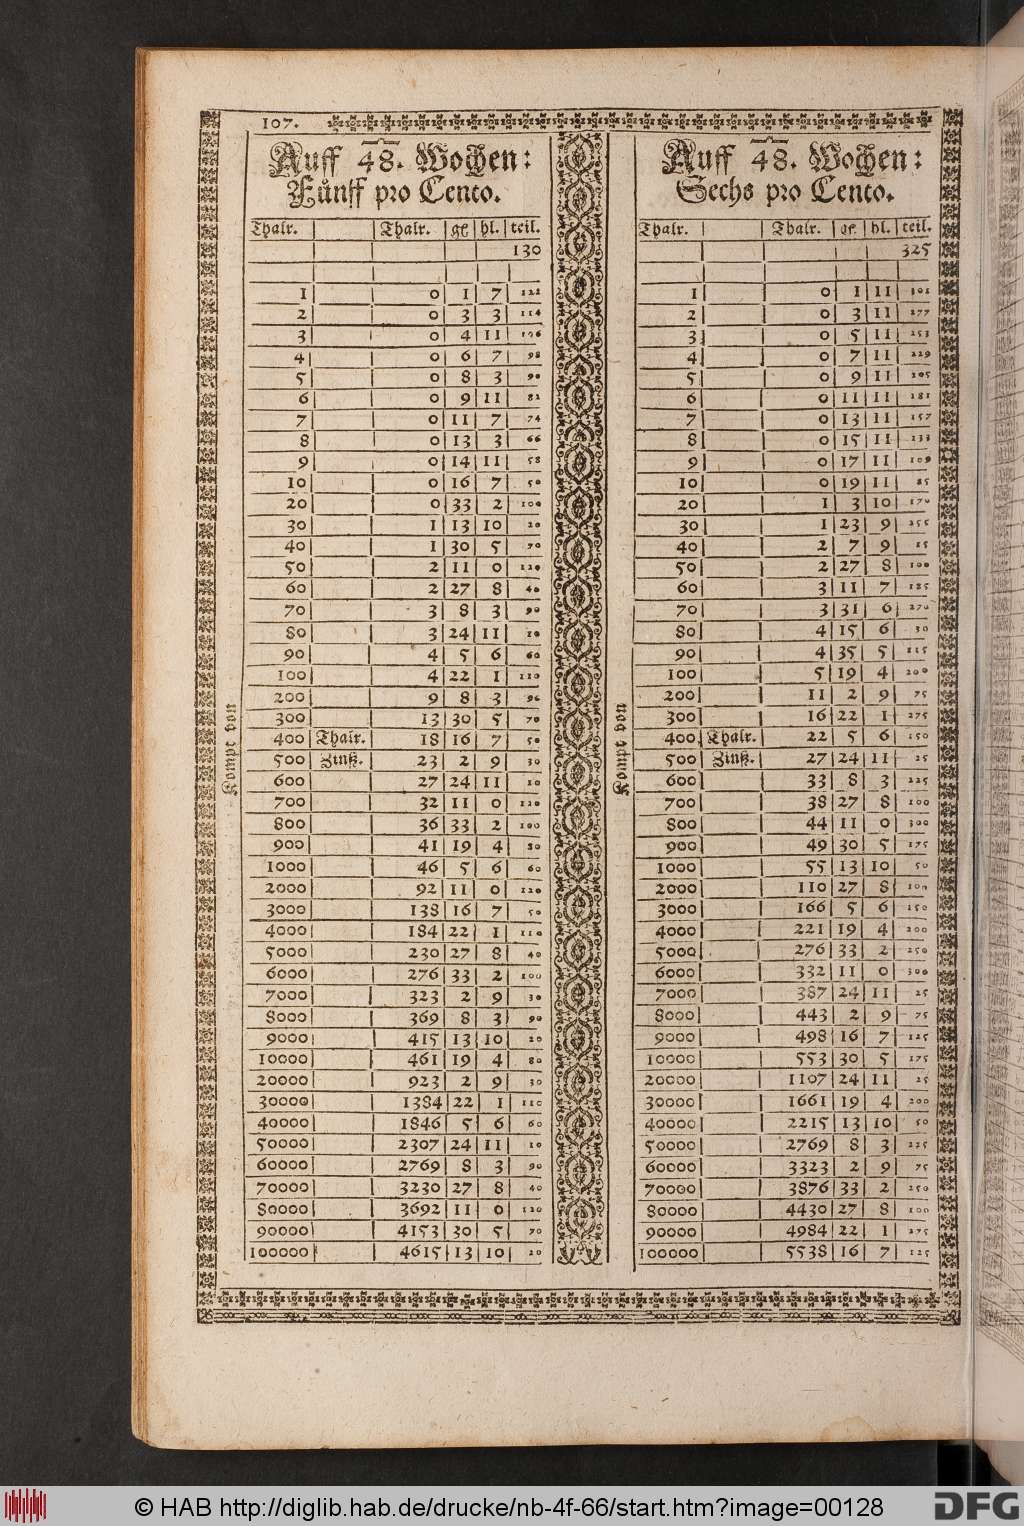 107.
Auff 48. Wochen:
Fünff pro Cento.
Thalr. Thalr. gl hl. teil.
130
1 0 1 7 122
2 0 3 3 114
3 0 4 11 106
4 0 6 7 98
5 0 8 3 90
6 0 9 11 82
7 0 11 7 74
8 0 13 3 66
9 0 14 11 58
10 0 16 7 50
20 0 33 2 100
30 1 13 10 20
40 1 30 5 70
50 2 11 0 120
60 2 27 8 40
70 3 8 3 90
80 3 24 11 10
90 4 5 6 60
100 4 22 1 110
200 9 8 3 90
300 13 30 5 70
400 Thalr. 18 16 7 50
500 Zinß. 23 2 9 30
600 27 24 11 10
700 32 11 0 120
800 36 33 2 100
900 41 19 4 80
1000 46 5 6 60
2000 92 11 0 120
3000 138 16 7 50
4000 184 22 1 110
5000 230 27 8 40
6000 276 33 2 100
7000 323 2 9 30
8000 369 8 3 90
9000 415 13 10 20
10000 461 19 4 80
20000 923 2 9 30
30000 1384 22 1 110
40000 1846 5 6 60
50000 2307 24 11 10
60000 2769 8 3 90
70000 3230 27 8 40
80000 3692 11 0 120
90000 4153 30 5 70
100000 4615 13 10 20
Kompt von
Auff 48. Wochen:
Sechs pro Cento.
Thalr. Thalr. gl. hl. teil.
325
1 0 1 11 301
2 0 3 11 277
3 0 5 11 253
4 0 7 11 229
5 0 9 11 205
6 0 11 11 181
7 0 13 11 157
8 0 15 11 133
9 0 17 11 109
10 0 19 11 85
20 1 3 10 170
30 1 23 9 255
40 2 7 9 15
50 2 27 8 100
60 3 11 7 185
70 3 31 6 270
80 4 15 6 30
90 4 35 5 115
100 5 19 4 200
200 11 2 9 75
300 16 22 1 275
400 Thalr. 22 5 6 150
500 Zinß. 27 24 11 25
600 33 8 3 225
700 38 27 8 100
800 44 11 0 300
900 49 30 5 175
1000 55 13 10 50
2000 110 27 8 100
3000 166 5 6 150
4000 221 19 4 200
5000 276 33 2 250
6000 332 11 0 300
7000 387 24 11 25
8000 443 2 9 75
9000 498 16 7 125
10000 553 30 5 175
20000 1107 24 11 25
30000 1661 19 4 200
40000 2215 13 10 50
50000 2769 8 3 225
60000 3323 2 9 75
70000 3876 33 2 250
80000 4430 27 8 100
90000 4984 22 1 275
100000 5538 16 7 125
Kompt von
© HAB http://diglib.hab.de/drucke/nb-4f-66/start.htm?image=00128
DFG